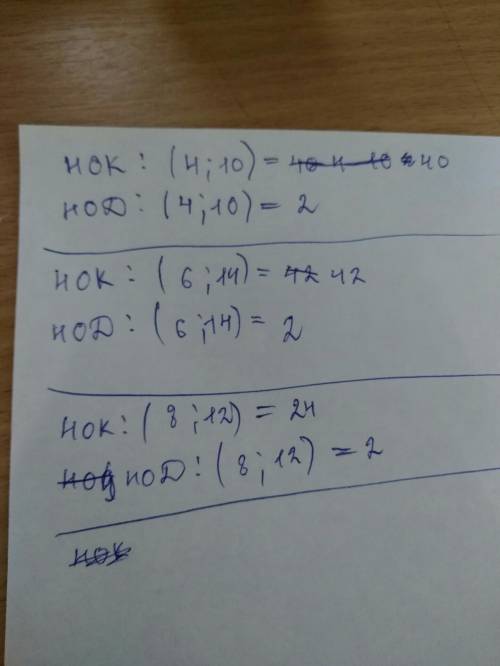 НОК: (4;10) = 40
НОД: (4;10) = 2
НОК: (6;14) = 42
НОД: (6;14) = 2
НОК: (8;12) = 24
НОД: (8;12) = 2